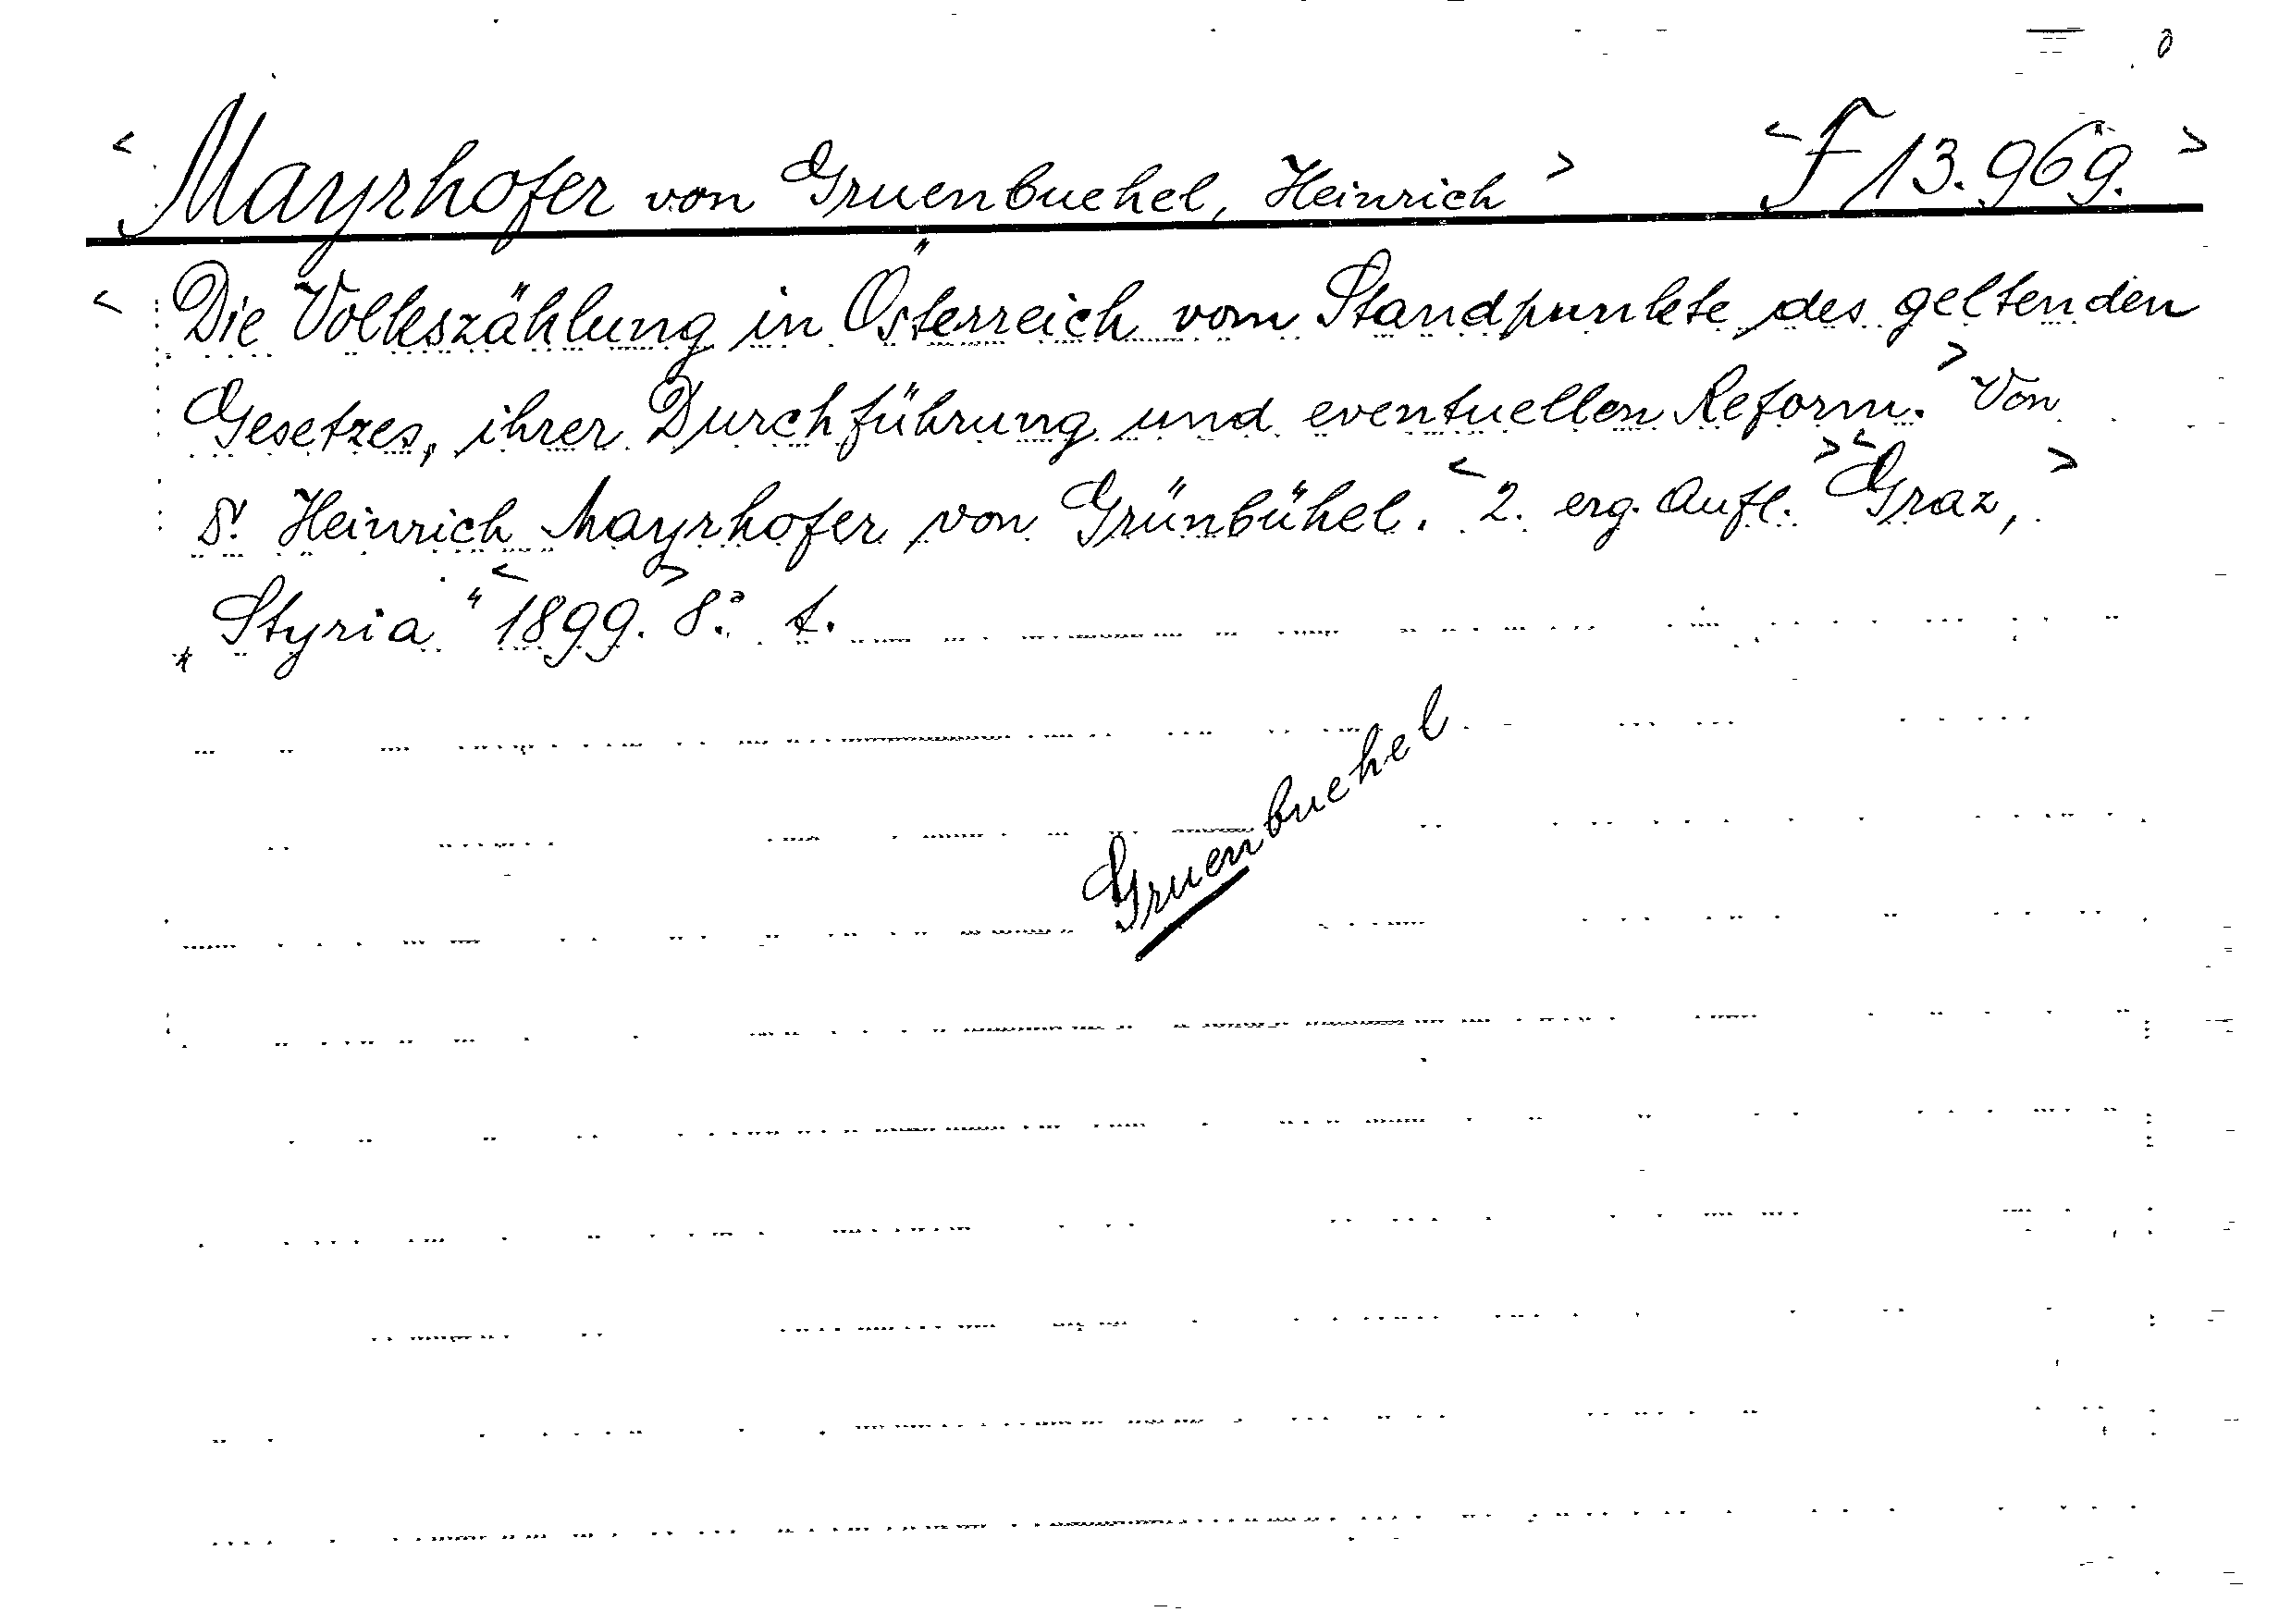 < Mayrhofer von Gruenbuehel, Heinrich > < F 13.969. >
< Die Volkszählung in Österreich vom Standpunkte des geltenden
Gesetzes, ihrer Durchführung und eventuellen Reform. > Von
Dr. Heinrich Mayrhofer von Grünbühel. < 2. erg. Aufl. > < Graz, >
„Styria“ < 1899. > 8.° t.
Gruenbuehel